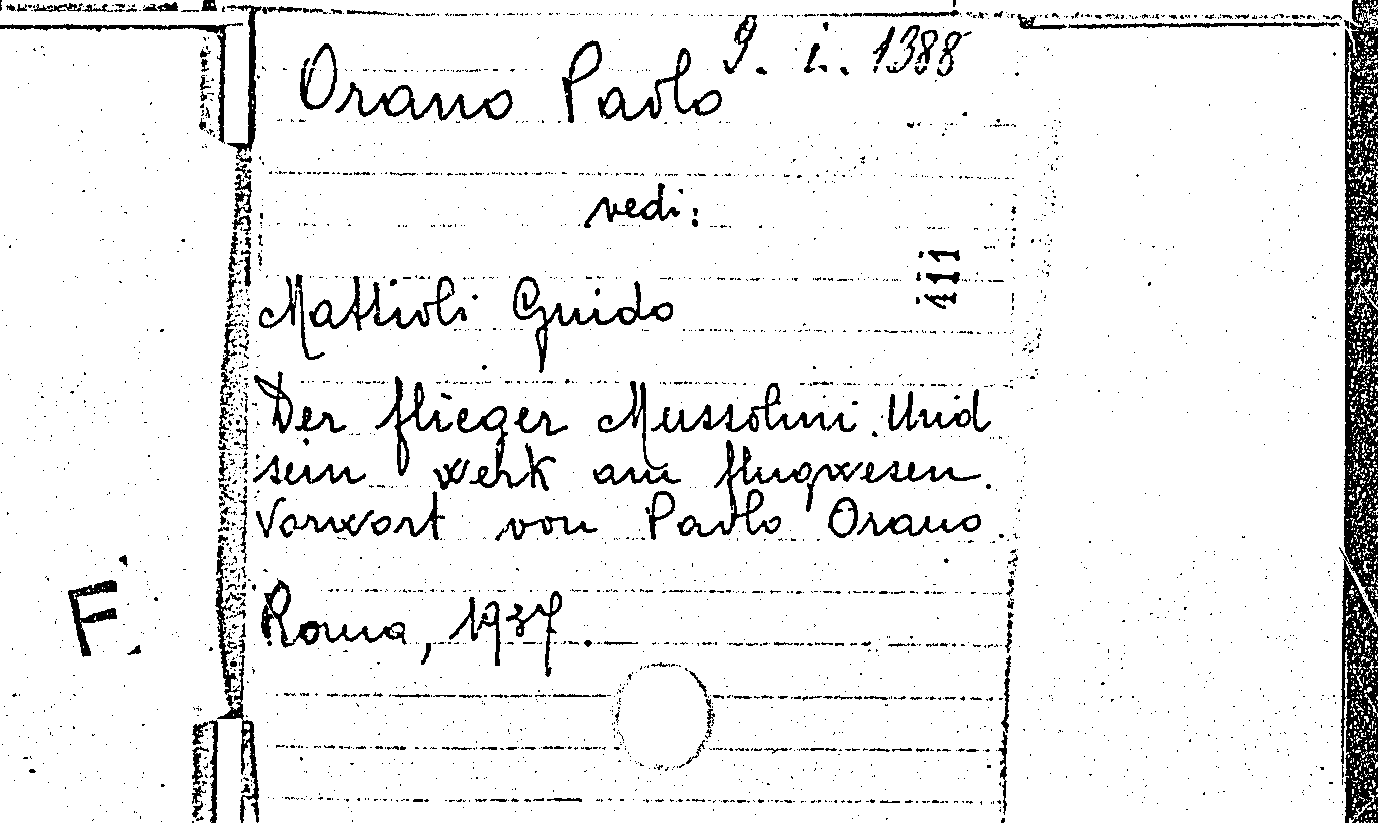 9. i. 1388
Orano Paolo
vedi:
111
Mattioli Guido
Der flieger Mussolini. Und
sein werk am flugwesen.
Vorwort von Paolo Orano.
F.
Roma, 1937.